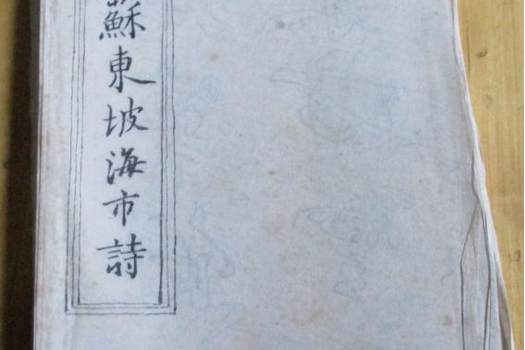 蘇東坡海市詩